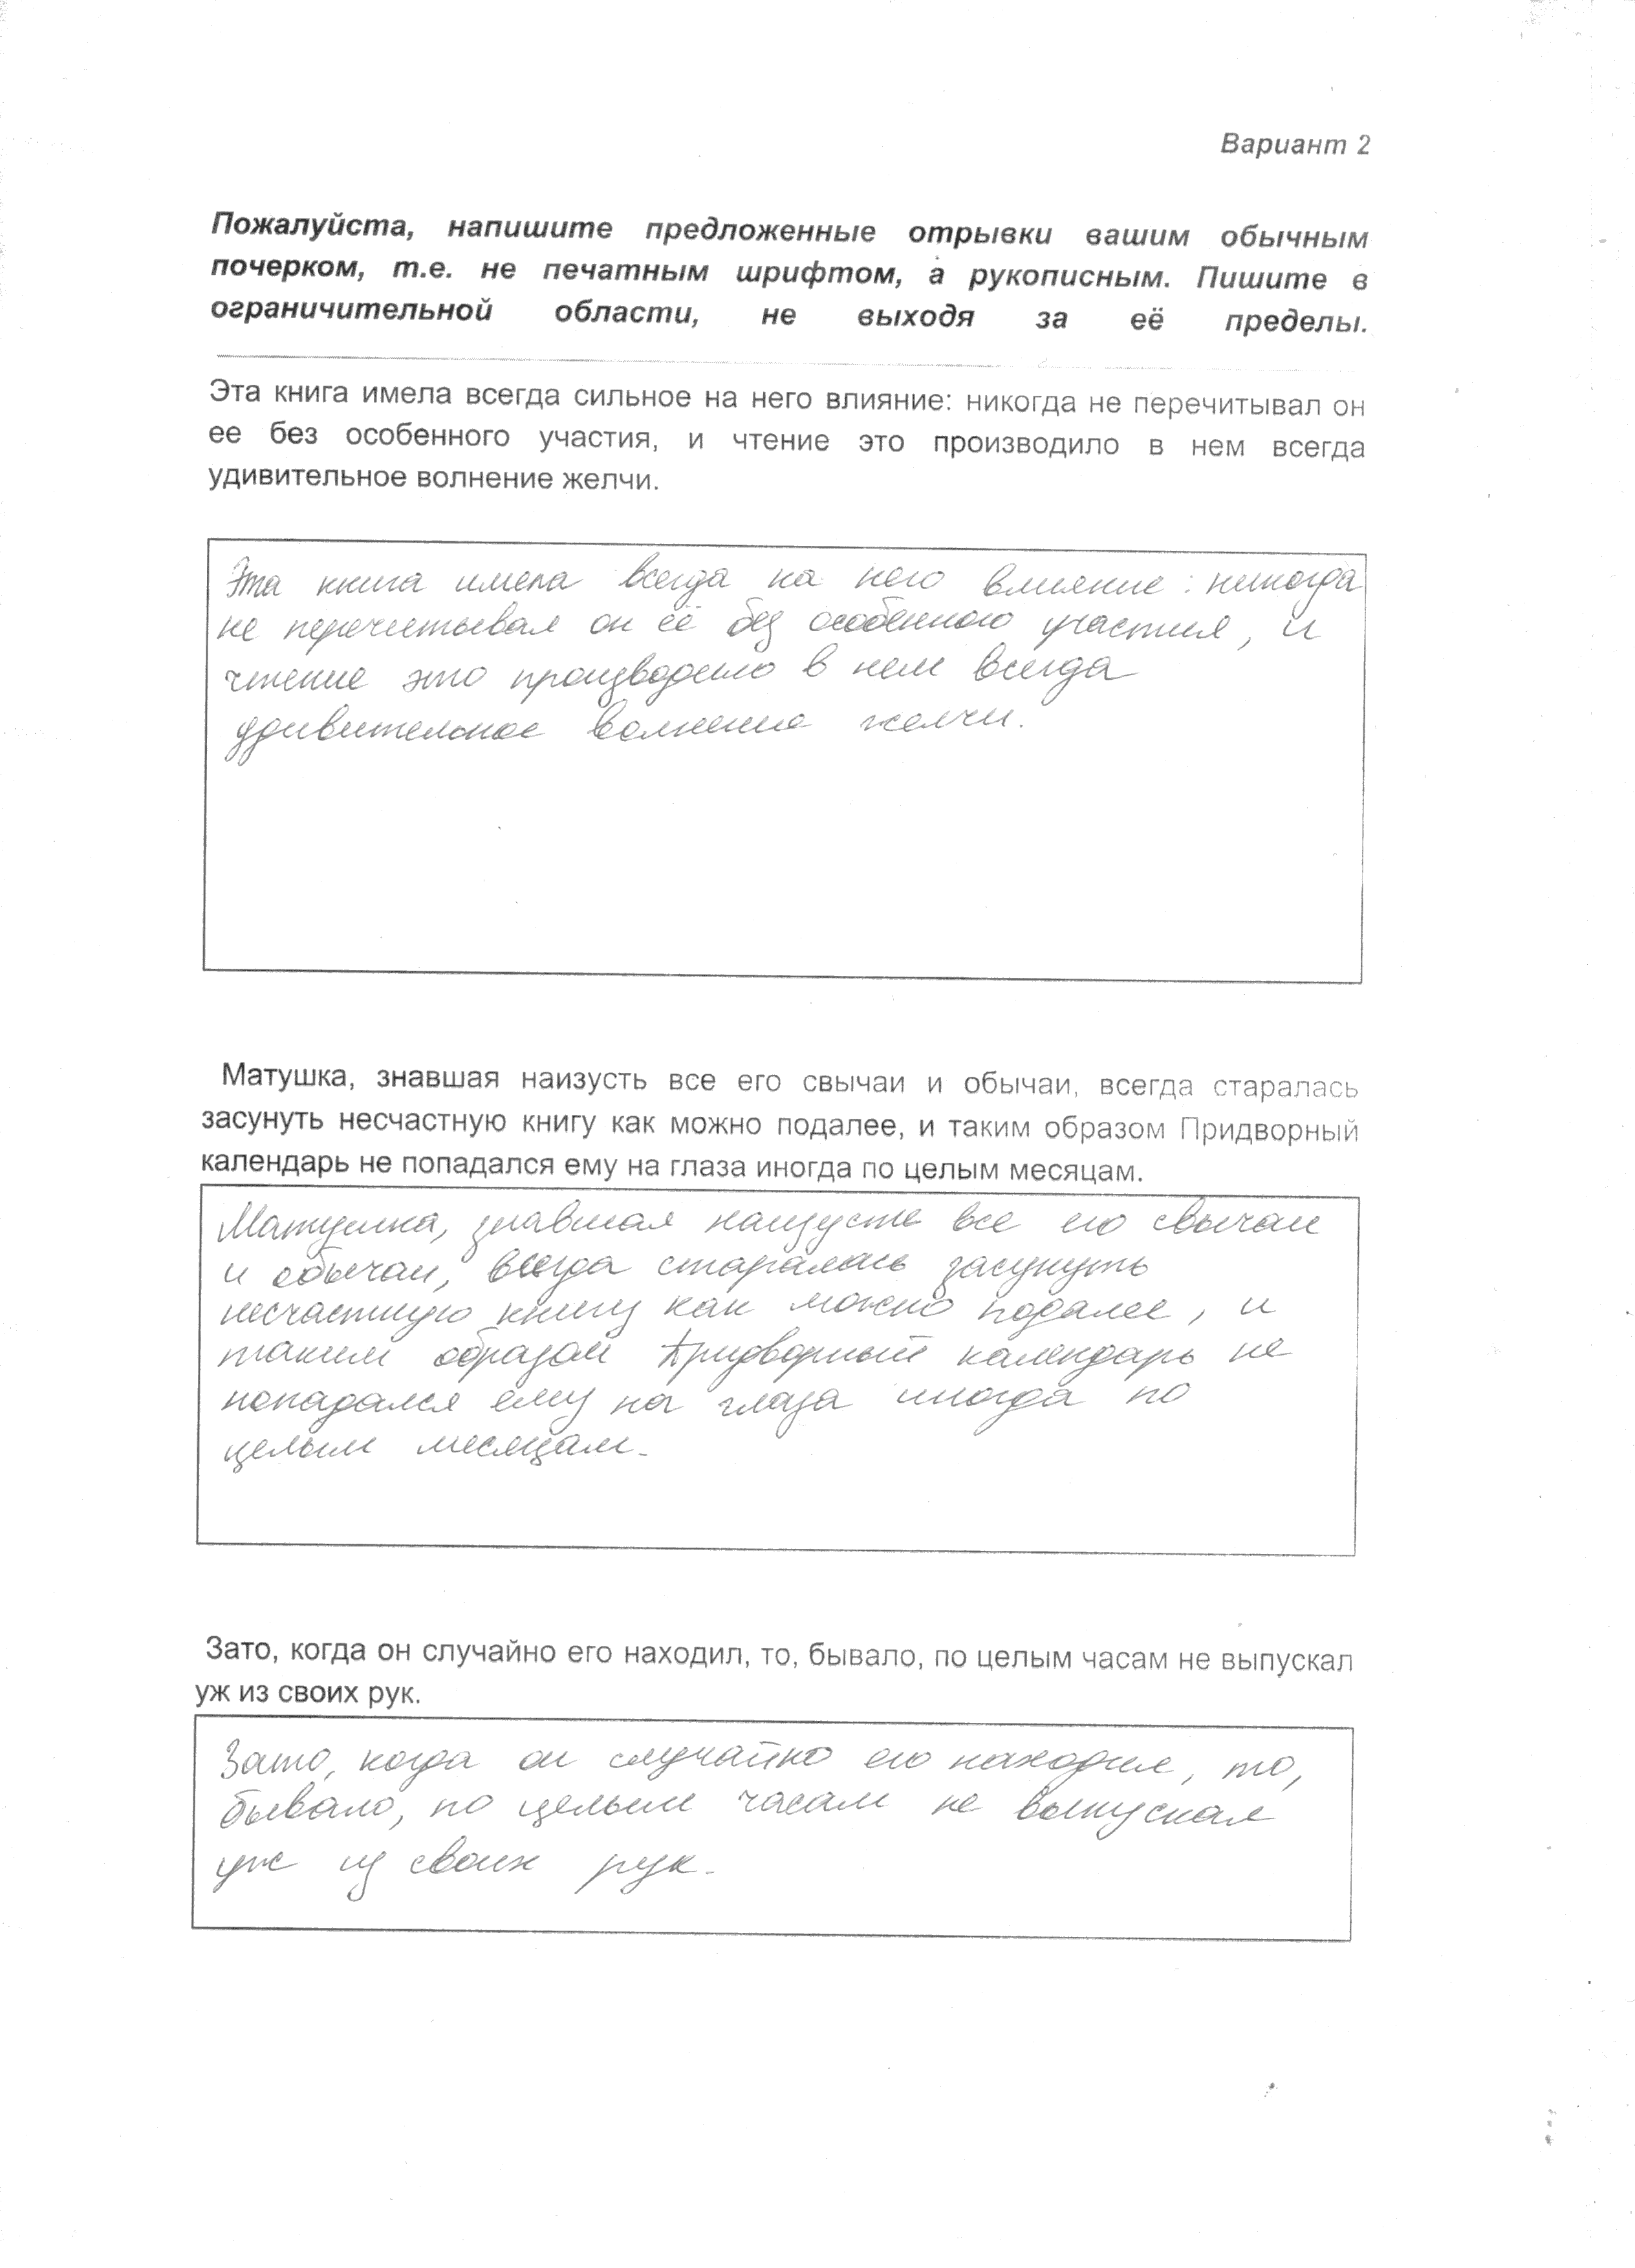 Вариант 2
Пожалуйста, напишите предложенные отрывки вашим обычным
почерком, т.е. не печатным шрифтом, а рукописным. Пишите в
ограничительной области, не выходя за её пределы.
Эта книга имела всегда сильное на него влияние: никогда не перечитывал он
ее без особенного участия, и чтение это производило в нем всегда
удивительное волнение желчи.
Эта книга имела всегда на него влияние: никогда
не перечитывал он её без особенного участия, и
чтение это производило в нем всегда
удивительное волнение желчи.
Матушка, знавшая наизусть все его свычаи и обычаи, всегда старалась
засунуть несчастную книгу как можно подалее, и таким образом Придворный
календарь не попадался ему на глаза иногда по целым месяцам.
Матушка, знавшая наизусть все его свычаи
и обычаи, всегда старалась засунуть
несчастную книгу как можно подалее, и
таким образом Придворный календарь не
попадался ему на глаза иногда по
целым месяцам.
Зато, когда он случайно его находил, то, бывало, по целым часам не выпускал
уж из своих рук.
Зато, когда он случайно его находил, то,
бывало, по целым часам не выпускал
уж из своих рук.